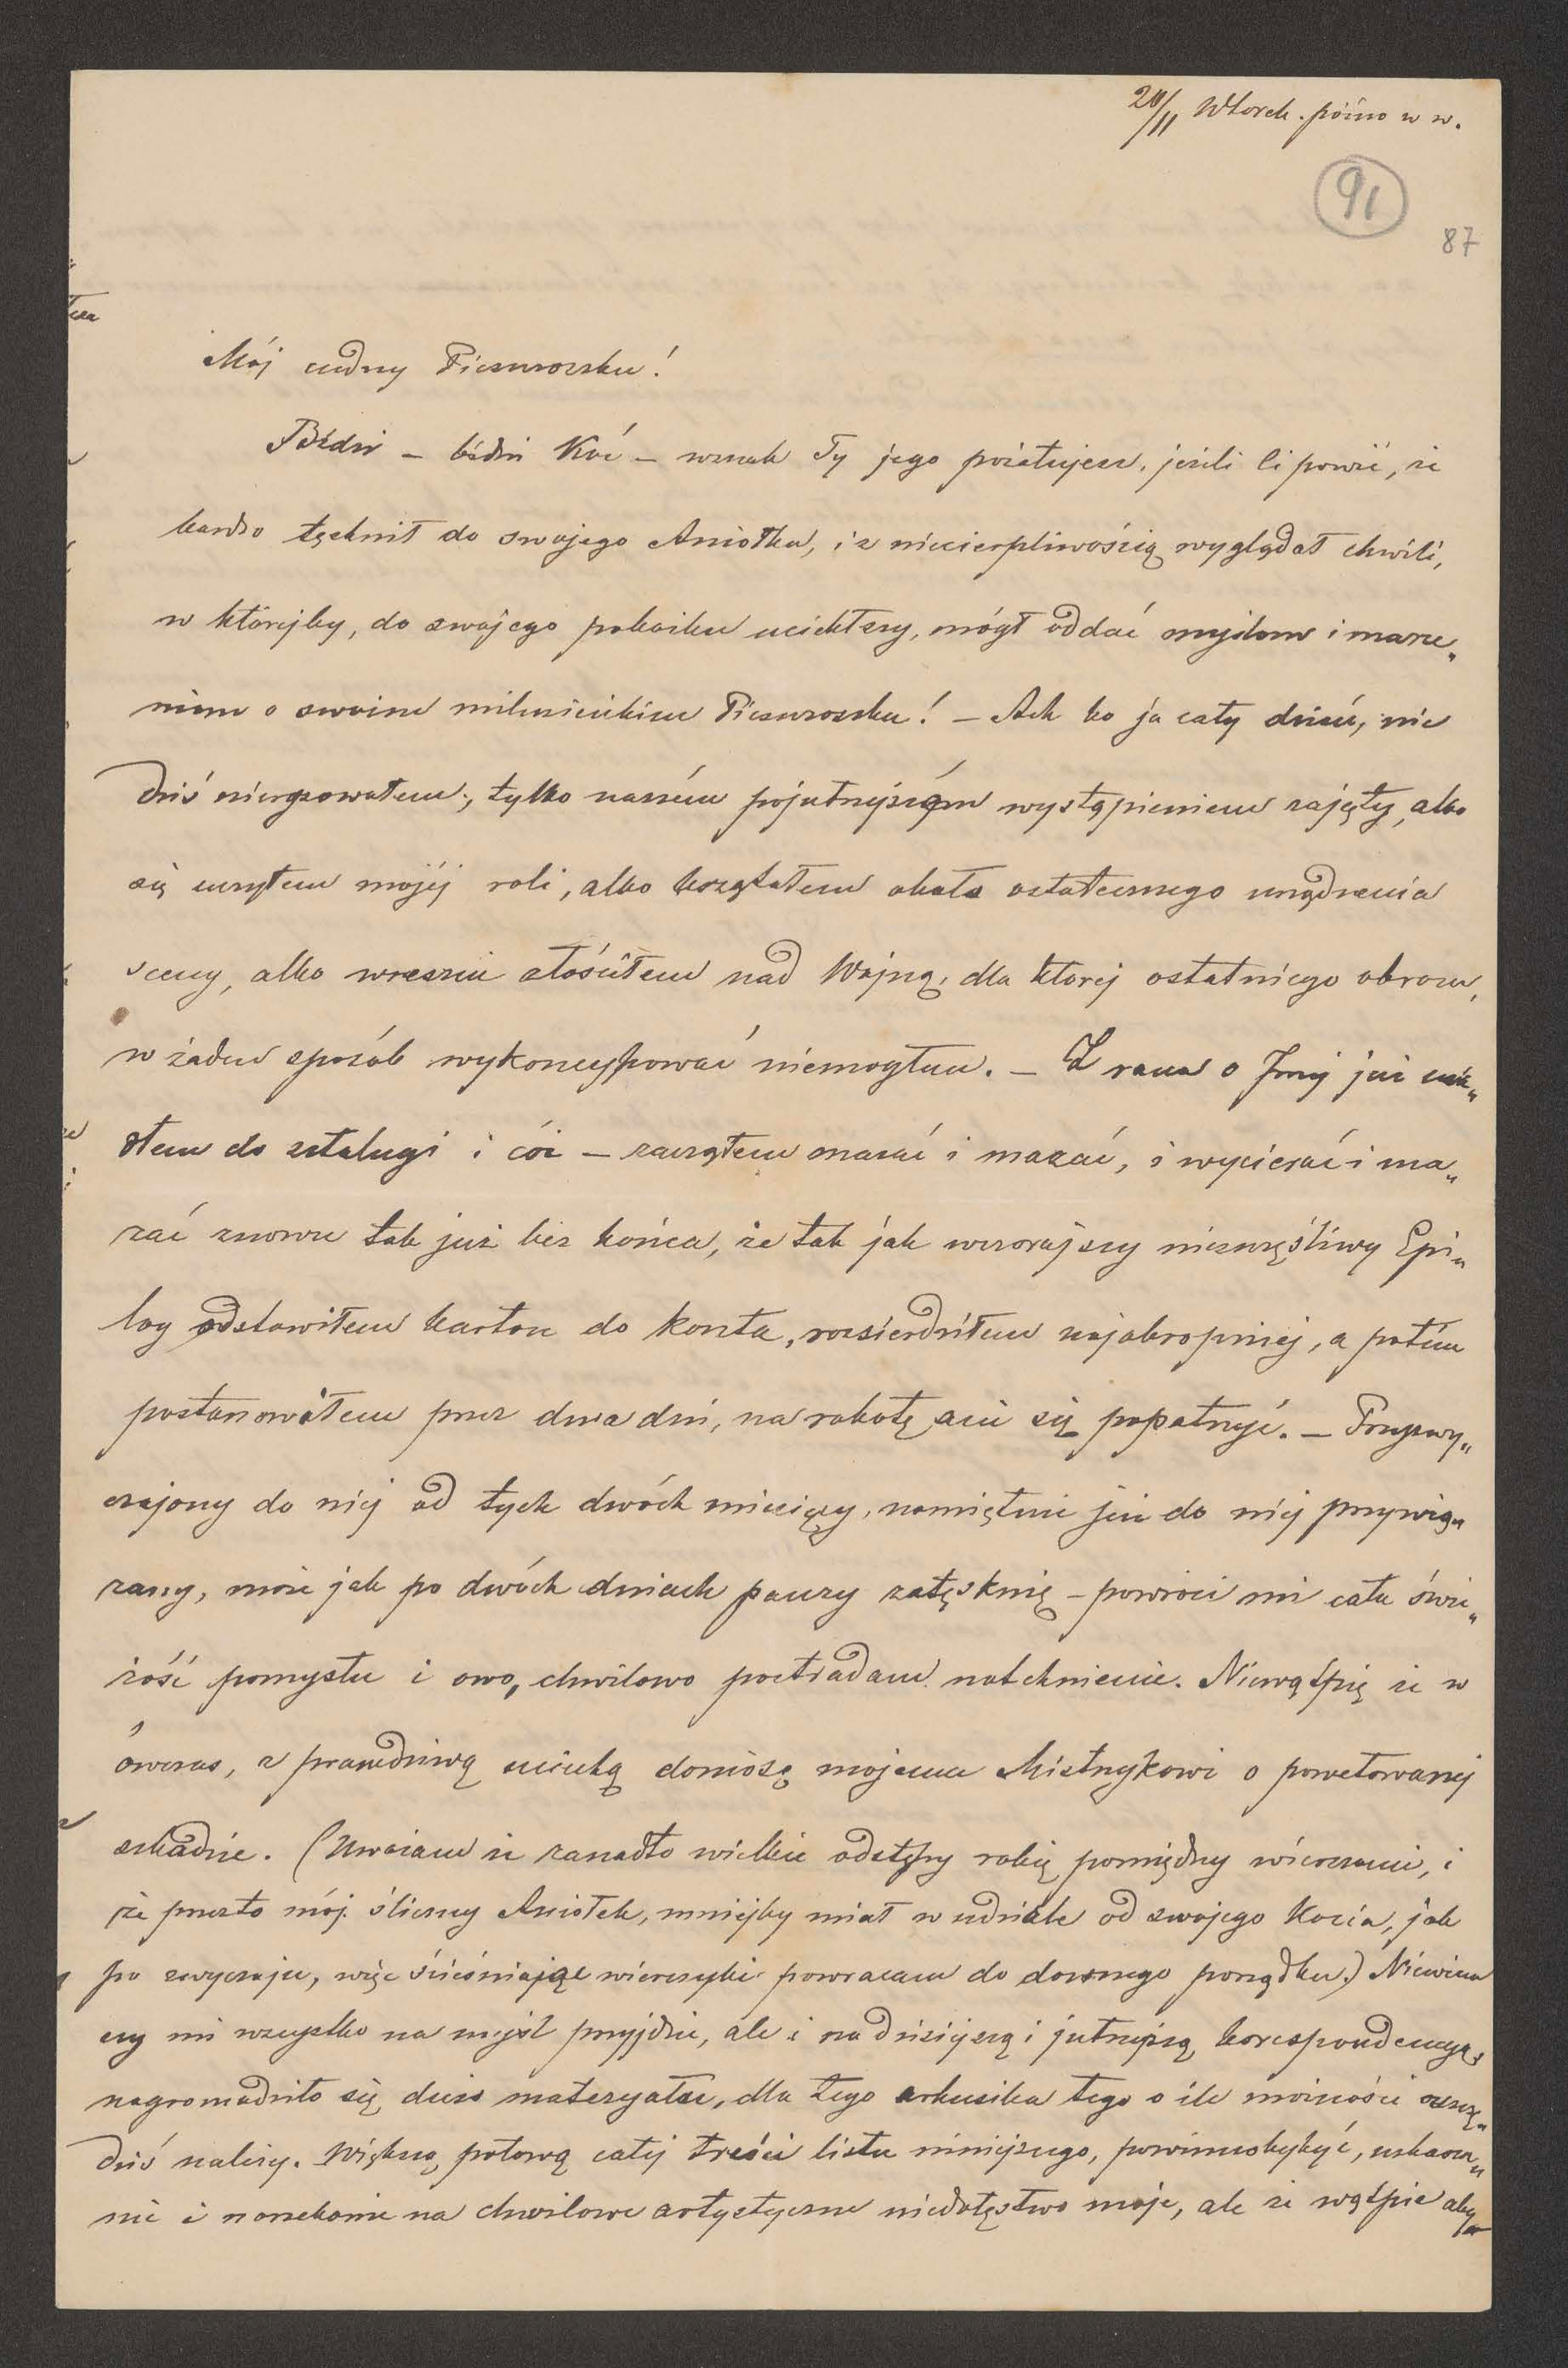 20/11 Wtorek. późno w w.
91
87
Mój cudny Pieszczoszku!
Biédni – biédni Koć – wszak Ty jego pożałujesz, jeżeli Ci powié, że
bardzo tęchnił do swojego Aniołka, i z niecierpliwością wyglądał chwili,
w którejby, do swojego pokoiku uciekłszy, mógł oddać myślom i marze„
niom o swoim miluśieńkim Pieszczoszku! – Ach bo ja cały dzień, nic
dziś nierysowałem, tylko naszém pojutrzejszém wystąpieniem zajęty, albo
się uczyłem mojéj roli, albo krzątałem około ostatecznego urządzenia
sceny, albo wreszcie złościłem nad Wojną, dla której ostatniego obrazu,
w żaden sposób wykoncypować niemogłem. – Z rana o 7mej już usia„
dłem do sztalugi i cóż – zacząłem mazać i mazać, i wycierać i ma„
zać znowu tak już bez końca, że tak jak wczorajszy nieszczęśliwy Epi„
log odstawiłem karton do konta, rozsierdziłem najokropniej, a potém
postanowiłem przez dwa dni, na robotę ani się popatrzyć. – Przyzwy„
czajony do niéj od tych dwóch miesięcy, namiętnie już do niéj przywią„
zany, może jak po dwóch dniach pauzy zatęsknię – powróci mi cała świe„
żość pomysłu i owo, chwilowo postradane natchnienie. Niewątpię że w
ówczas, z prawdziwą uciechą doniosę mojemu Mistrzykowi o powetowanej
szkodzie. (Uważam że zanadto wielkie odstępy robię pomiędzy wierszami, i
że przeto mój śliczny Aniołek, mniejby miał w udziale od swojego Kocia, jak
po zwyczaju, więc ścieśniając wierszyki powracam do dawnego porządku.) Niewiem
czy mi wszystko na myśl przyjdzie, ale i na dzisiejszą i jutrzejszą korespondencyą
nagromadziło się dużo materyału, dla tego arkusika tego o ile możności oszczę„
dzić należy. Większą połową całej treści listu niniejszego, powinnobybyć, uskarza„
nie i narzekanie na chwilowe artystyczne niedołęstwo moje, ale że wątpię aby